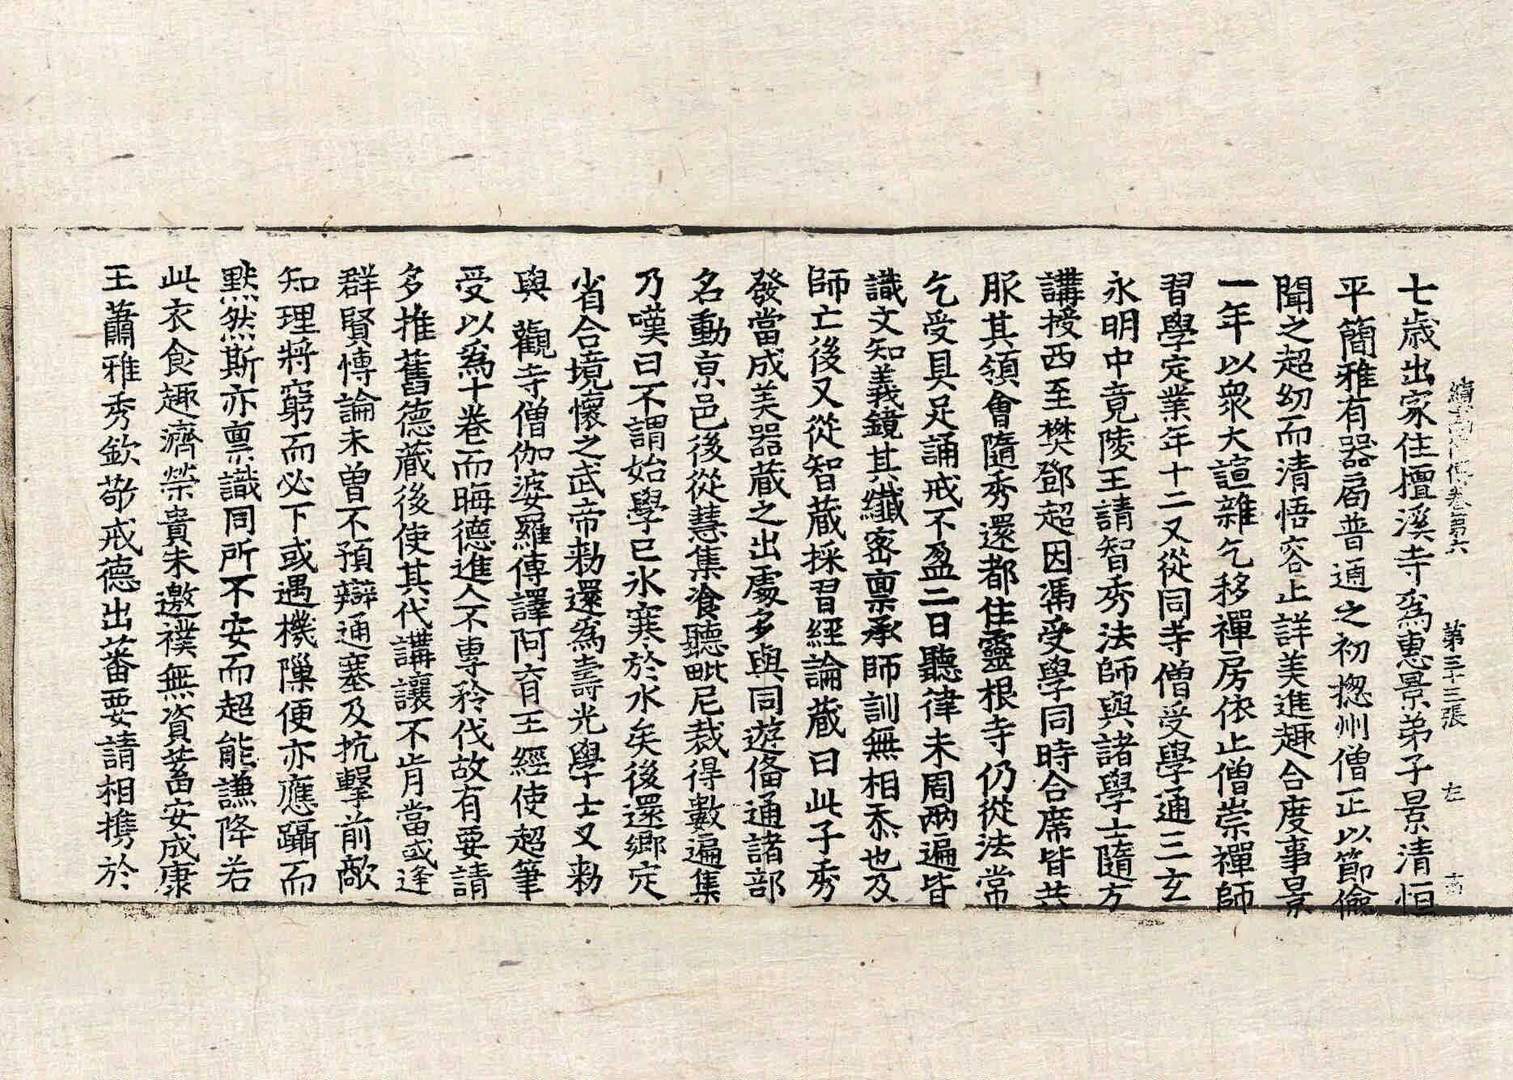 續高僧傳卷第六 第三十三張 左
七歲出家住檀溪寺爲惠景弟子景清恒
平簡雅有器局普通之初揔州僧正以節儉
聞之超幼而清悟容止詳美進趣合度事景
一年以衆大諠雜乞移禪房依止僧崇禪師
習學定業年十二又從同寺僧受學通三玄
永明中竟陵王請智秀法師與諸學士隨方
講授西至樊鄧超因馮受學同時合席皆共
服其領會隨秀還都住靈根寺仍從法常
乞受具足誦戒不盈二日聽律未周兩遍皆
識文知義鏡其纖密禀承師訓無相忝也及
師亡後又從智藏採習經論藏曰此子秀
發當成美器藏之出處多與同遊俻通諸部
名動京邑後從慧集飡聽毗尼裁得數遍集
乃嘆曰不謂始學已氷寒於水矣後還鄉定
省合境懷之武帝勑還爲壽光學士又勑
與 觀寺僧伽婆羅傳譯阿育王經使超筆
受以爲十卷而晦德進人不專矜伐故有要請
多推舊德藏後使其代講讓不肯當或逢
群賢愽論未曽不預辯通塞及抗擊前敵
知理將窮而必下或遇機隟便亦應躡而
黙然斯亦禀識同所不安而超能謙降若
此衣食趣濟榮貴未邀襆無資蓄安成康
王蕭雅秀欽敬戒德出蕃要請相携於